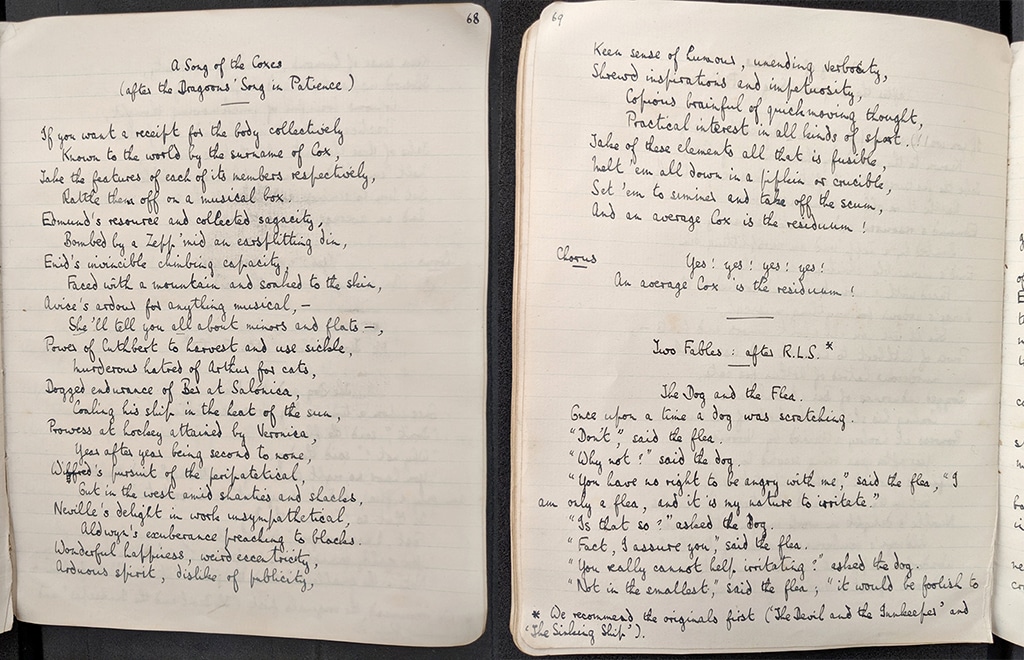 68
A Song of the Coxes
(after the Dragoons' Song in Patience)
If you want a receipt for the body collectively
Known to the world by the surname of Cox,
Take the features of each of its members respectively,
Rattle them off on a musical box.
Edmund's resource and collected sagacity,
Bombed by a Zepp 'mid an earsplitting din,
Enid's invincible climbing capacity,
Faced with a mountain and soaked to the skin,
Avice's ardour for anything musical, —
She'll tell you all about minors and flats —,
Power of Cuthbert to harvest and use sickle,
Murderous hatred of Arthur for cats,
Dogged endurance of Ber at Salonica,
Coaling his ship in the heat of the sun,
Prowess at hockey attained by Veronica,
Year after year being second to none,
Wilfred's pursuit of the peripatetical,
Out in the west amid shanties and shacks,
Neville's delight in work unsympathetical,
Aldwyn's exuberance preaching to blacks.
Wonderful happiness, weird eccentricity,
Arduous spirit, dislike of publicity,
69
Keen sense of humour, unending verbosity,
Shrewd inspirations and impetuosity,
Copious brainful of quickmoving thought,
Practical interest in all kinds of sport.
Take of these elements all that is fusible,
Melt 'em all down in a pipkin or crucible,
Set 'em to simmer and take off the scum,
And an average Cox is the residuum!
Chorus Yes! yes! yes! yes!
An average Cox is the residuum!
Two Fables: after R.L.S.*
The Dog and the Flea.
Once upon a time a dog was scratching.
"Don't" said the flea.
"Why not?" said the dog.
"You have no right to be angry with me," said the flea, "I
am only a flea, and it is my nature to irritate."
"Is that so?" asked the Dog.
"Fact, I assure you," said the flea.
"You really cannot help irritating?" asked the dog.
"Not in the smallest," said the flea; "it would be foolish to
* We recommend the originals first ('The Devil and the Innkeeper' and
'The Sinking Ship').